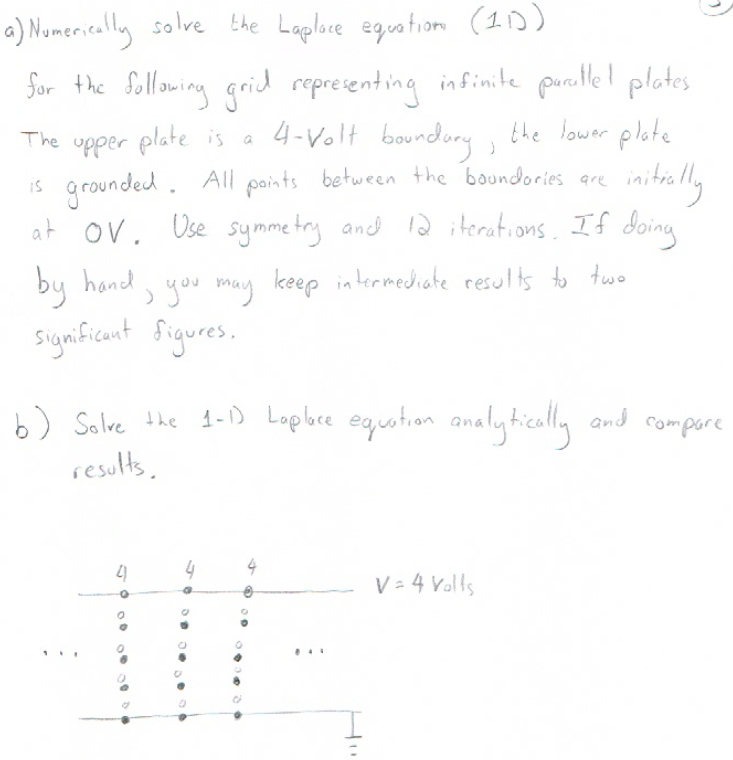 a) Numerically solve the Laplace equation (1D)
for the following grid representing infinite parallel plates
The upper plate is a 4-Volt boundary, the lower plate
is grounded. All points between the boundaries are initially
at 0V. Use symmetry and 12 iterations. If doing
by hand, you may keep intermediate results to two
significant figures.
b) Solve the 1-D Laplace equation analytically and compare
results.
4 4 4
V = 4 Volts
0 0 0
... 0 0 0 ...
0 0 0
0 0 0